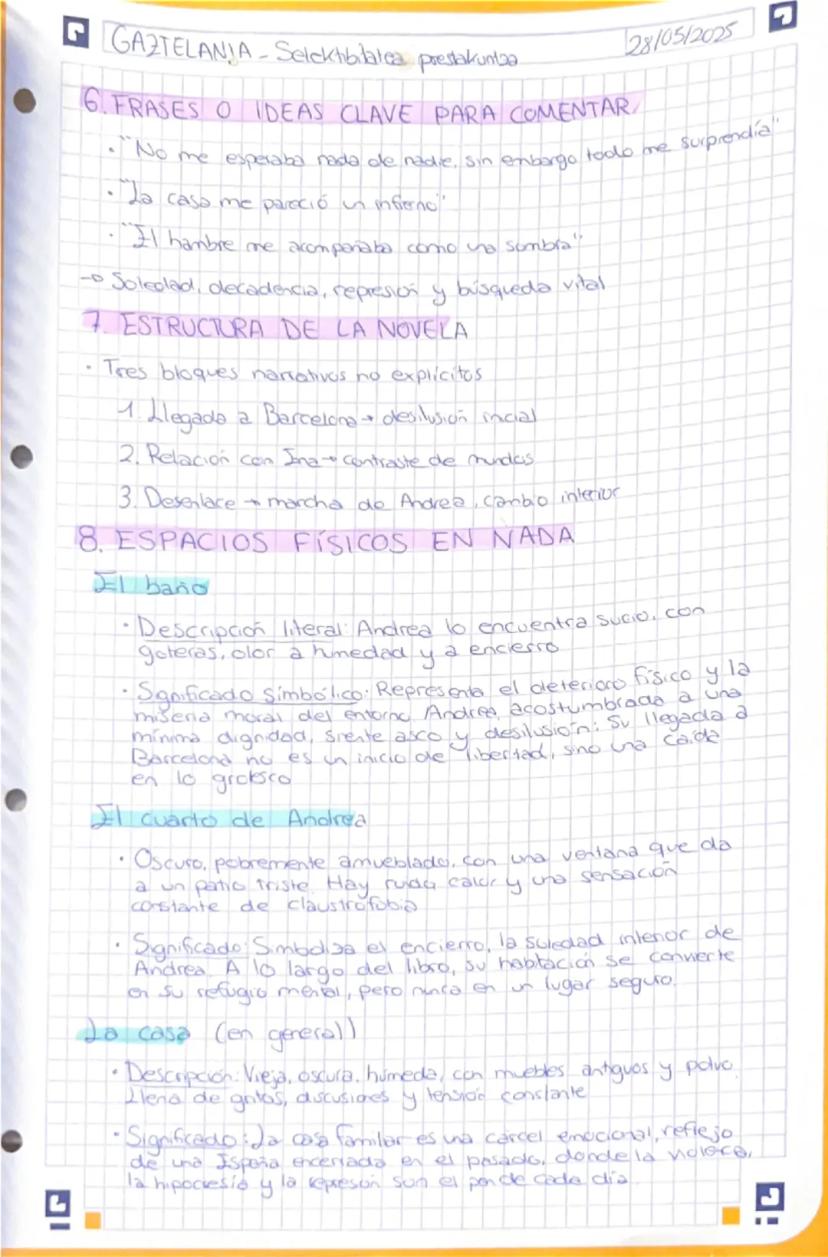 GAZTELANIA - Selektibitatea prestakuntza
28/05/2025
6. FRASES O IDEAS CLAVE PARA COMENTAR
· "No me esperaba nada de nadie, sin embargo todo me surprendía"
· "La casa me pareció un infierno"
· "El hambre me acompañaba como una sombra"
→ Soledad, decadencia, represión y búsqueda vital
7. ESTRUCTURA DE LA NOVELA
· Tres bloques narrativos no explícitos
1. Llegada a Barcelona → desilusión incial
2. Relación con Ena → contraste de mundos
3. Desenlace → marcha de Andrea, cambio interior
8. ESPACIOS FÍSICOS EN NADA
El baño
· Descripción literal: Andrea lo encuentra sucio, con
goteras, olor a humedad y a encierro
· Significado simbólico: Representa el deterioro físico y la
miseria moral del entorno. Andrea, acostumbrada a una
mínima dignidad, siente asco y desilusión: Su llegada a
Barcelona no es un inicio de libertad, sino una caída
en lo grotesco
El cuarto de Andrea
· Oscuro, pobremente amueblado, con una ventana que da
a un patio triste. Hay ruido, calor y una sensación
constante de claustrofobia
· Significado: Simboliza el encierro, la soledad interior de
Andrea. A lo largo del libro, su habitación se convierte
en su refugio mental, pero nunca en un lugar seguro.
La casa (en general))
· Descripción: Vieja, oscura, húmeda, con muebles antiguos y polvo.
Llena de gritos, discusiones y tensión constante
· Significado: La casa familiar es una cárcel emocional, reflejo
de una España encerrada en el pasado, donde la violencia,
la hipocresía y la represión son el pan de cada día.